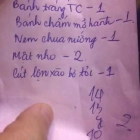 Bánh tráng TC - 1
Bánh chấm mỡ hành - 1
Nem chua nướng - 1
Mắt nho - 2
Cút lộn xào bơ tỏi - 1
15
10